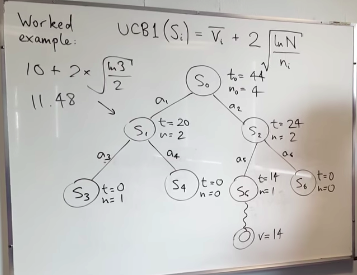 Worked
example:
UCB1(Si) = V̄i + 2 √(lnN / ni)
10 + 2 × √(ln3 / 2)
11.48
S0
t0 = 44
n0 = 4
a1
a2
S1
t = 20
n = 2
S2
t = 24
n = 2
a3
a4
a5
a6
S3
t = 0
n = 1
S4
t = 0
n = 0
t = 14
n = 1
S6
t = 0
n = 0
v = 14